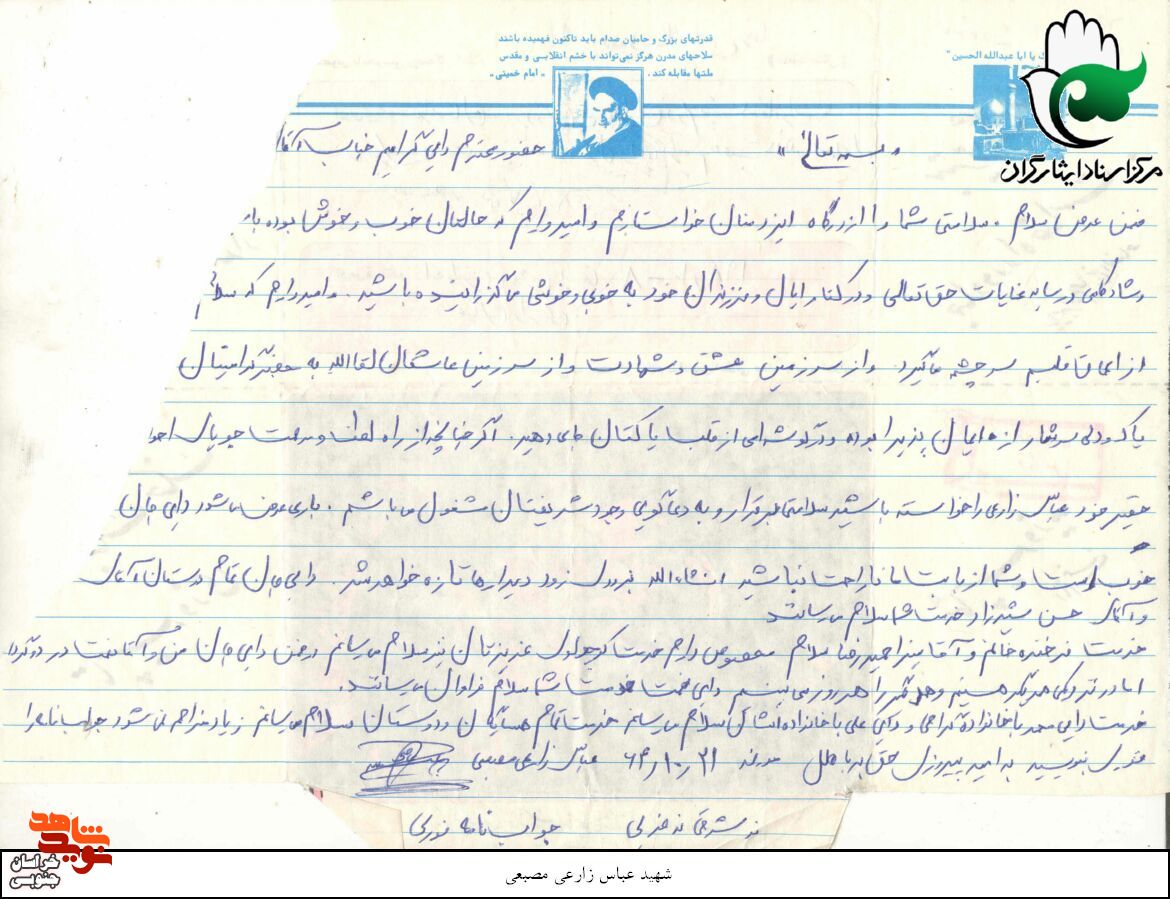 قدرتهای بزرگ و حامیان صدام باید تاکنون فهمیده باشند
سلاحهای مدرن هرگز نمی‌تواند با خشم انقلابی و مقدس
ملتها مقابله کند. «امام خمینی»
یا ابا عبدالله الحسین"
مرکز اسناد ایثارگران
«بسمه تعالی» حضور محترم دایی گرامیم جناب آقا
ضمن عرض سلام، سلامتی شما را از درگاه ایزد منان خواستارم و امیدوارم که حالتان خوب و خوش بوده با
و شادکامی در سایه عنایات حق تعالی و در کنار ایال و فرزندان خود به خوبی و خوشی گذرانیده باشید. و امیدوارم که سلام
از اعماق قلبم سرچشمه میگیرد و از سرزمین عشق و شهادت و از سرزمین عاشقان لقاالله به حضور گرامیتان
پاک و دلی سرشار از ایمان پذیرا بوده و در گوشه‌ای از قلب پاکتان جای دهید. اگر چنانچه از راه لطف و مرحمت جویای احوا
حقیر خود عباس زارعی را خواسته باشید سلامتی برقرار و به دعاگویی وجود شریفتان مشغول می باشم. باری عرض میشود دایی جان
خوب است و شما از بابت ما ناراحت نباشید انشاءالله بزودی زود دیدارها تازه خواهد شد. دایی جان تمام دوستان آقای
و آقای حسن شیرزاد خدمت شما سلام می رسانند
خدمت فرخنده خانم و آقا میرزا حمیدرضا سلام مخصوص دارم خدمت کوچولوی عزیزتان نیز سلام می رسانم در ضمن دایی جان من و آقا نعمت در
اما در نزدیکی همدیگر هستیم و همدیگر را هر روز می بینیم دایی نعمت خدمت شما سلام فراوان می رسانند.
خدمت دایی محمد با خانواده گرامی و دایی علی با خانواده ایشان سلام می رسانم خدمت تمام همسایگان و دوستان سلام می رسانم زیاد مزاحم نمی شود جواب نامه را
فوری بنویسید به امید پیروزی حق بر باطل مورخه ۶۴/۱۰/۲۱ عباس زارعی مصعبی
نه شرقی نه غربی جواب نامه فوری
شاهد
نوید
خراسان
جنوبی
شهید عباس زارعی مصبعی